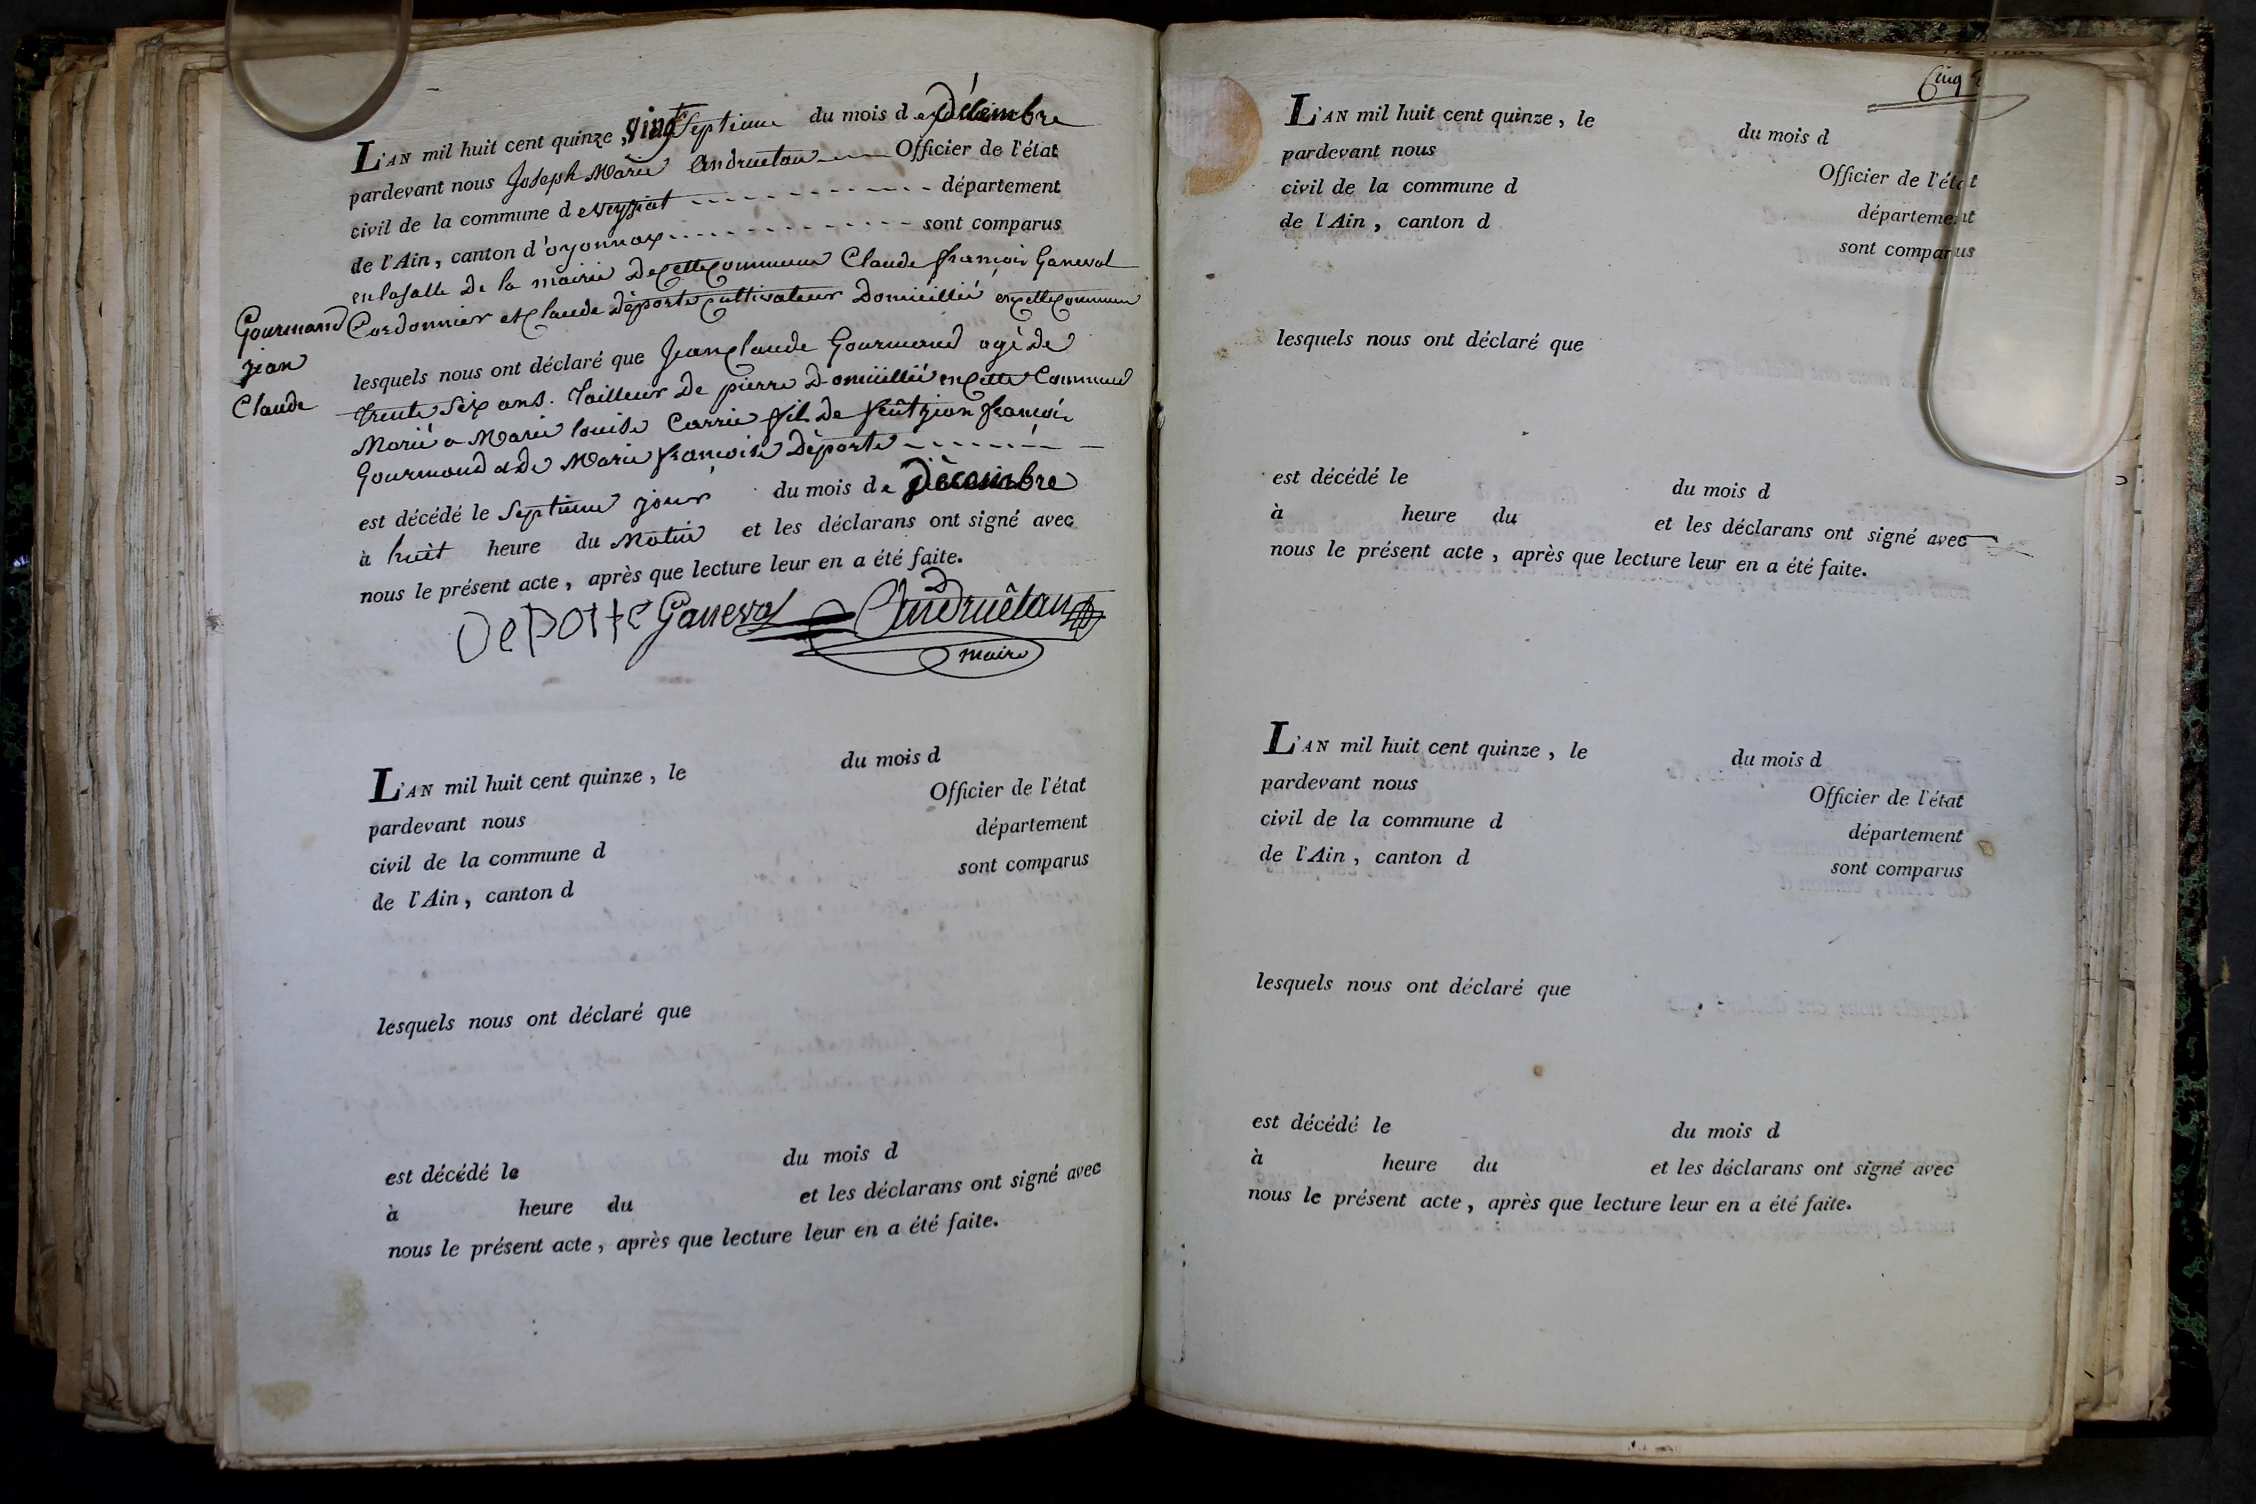 L'AN mil huit cent quinze, vingt Septieme du mois de Décembre
pardevant nous Joseph Marie Andruétan Officier de l'état
civil de la commune de veyziat département
de l'Ain, canton d'oyonnax sont comparus
en la salle de la mairie de cette commune Claude françois Ganeval
Cordonnier et Claude déporte cultivateur domicillié en cette commune
Gourmand
jean
Claude
lesquels nous ont déclaré que Jean claude Gourmand agé de
trente six ans. tailleur de pierre domicillié en cette Commune
Marié a Marie louise Carrie fils de feût jean françois
Gourmand et de Marie françoise déporte
est décédé le Septieme jour du mois de Décembre
à huit heure du Matin et les déclarans ont signé avec
nous le présent acte, après que lecture leur en a été faite.
DePorte Ganeval Andruétan
maire
L'AN mil huit cent quinze, le du mois d
pardevant nous Officier de l'état
civil de la commune d département
de l'Ain, canton d sont comparus
lesquels nous ont déclaré que
est décédé le du mois d
à heure du et les déclarans ont signé avec
nous le présent acte, après que lecture leur en a été faite.
Cinq
L'AN mil huit cent quinze, le du mois d
pardevant nous Officier de l'état
civil de la commune d département
de l'Ain, canton d sont comparus
lesquels nous ont déclaré que
est décédé le du mois d
à heure du et les déclarans ont signé avec
nous le présent acte, après que lecture leur en a été faite.
L'AN mil huit cent quinze, le du mois d
pardevant nous Officier de l'état
civil de la commune d département
de l'Ain, canton d sont comparus
lesquels nous ont déclaré que
est décédé le du mois d
à heure du et les déclarans ont signé avec
nous le présent acte, après que lecture leur en a été faite.